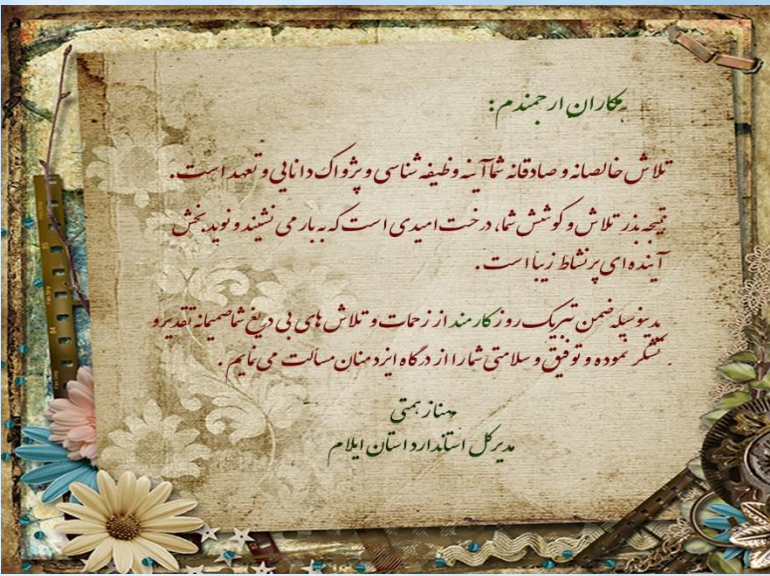 همکاران ارجمندم :
تلاش خالصانه و صادقانه شما آینه وظیفه شناسی و پژواک دانایی و تعهد است .
نتیجه بذر تلاش و کوشش شما، درخت امیدی است که به بار می نشیند و نوید بخش
آینده ای پرنشاط زیبا است .
بدینوسیله ضمن تبریک روز کارمند از زحمات و تلاش های بی دریغ شما صمیمانه تقدیر و
تشکر نموده و توفیق و سلامتی شما را از درگاه ایزد منان مسألت می نمایم .
مهناز همتی
مدیرکل استاندارد استان ایلام